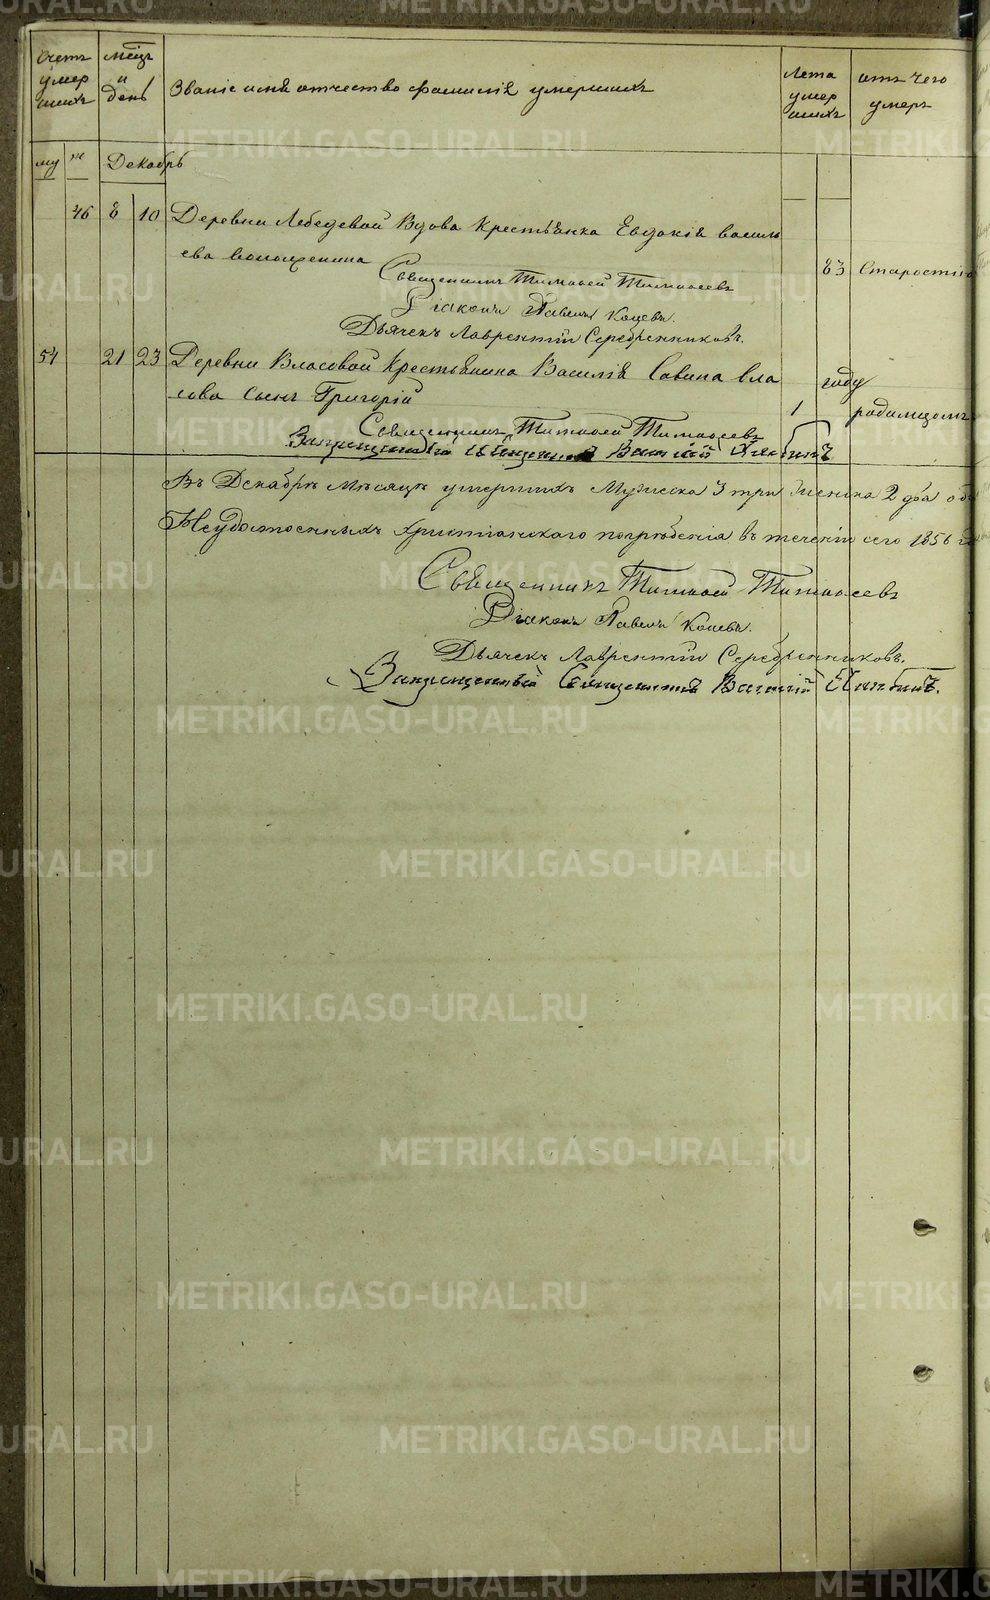 METRIKI.GASO-URAL.RU
Счетъ умер шихъ
мсцъ и день
Званіе имя отчество фамилія умершихъ
Лета умер шихъ
отъ чего умеръ
му ж Декабрь
46 8 10 Деревни Лебедевой Вдова Крестьянка Евдокія василь
ева 83 Старостію
Священникъ Тимофей Тимофеевъ
Діаконъ Павелъ Коцевъ.
Дьячекъ Лаврентій Серебренниковъ.
54 21 23 Деревни Власовой Крестьянина Василія Савина вла году
сова сынъ Григорій 1 родимцомъ
Священникъ Тимофей Тимофеевъ
Запрещенный Священникъ Василій
Въ Декабрѣ Месяцѣ умершихъ Мужеска 3 три женска 2 два
Неудостоенныхъ Христіанскаго погребенія въ теченіи сего 1856
Священникъ Тимофей Тимофеевъ
Діаконъ Павелъ Коцевъ.
Дьячекъ Лаврентій Серебренниковъ.
Запрещенный Священникъ Василій